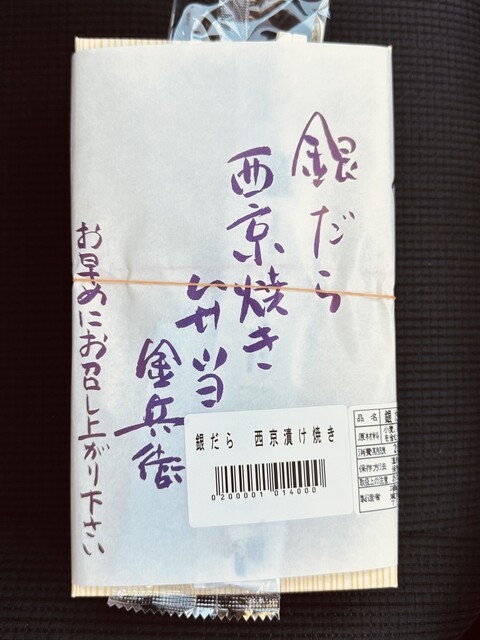 銀だら
西京焼き
弁当
金兵衛
お早めにお召し上がり下さい
銀だら 西京漬け焼き
0200001 014000
品名 銀
原材料
消費期限
保存方法
取扱上の注意
製造者